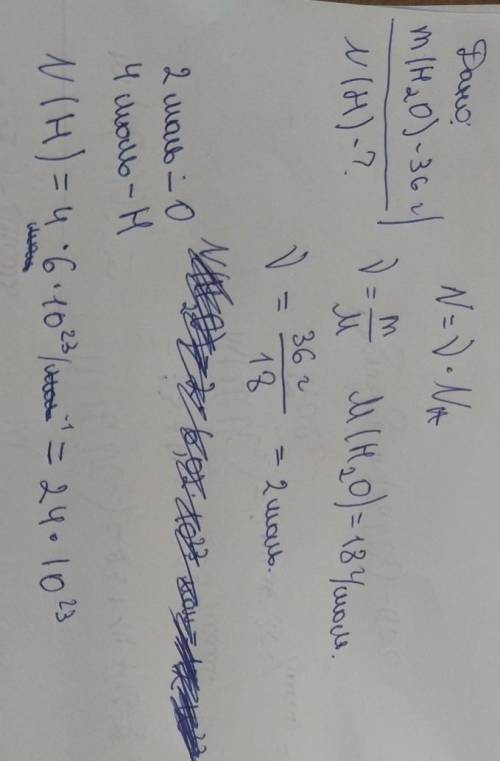 Дано:
m(H₂O) - 36 г
N(H) - ?
N = ν · Nₐ
ν = m/M M(H₂O) = 18 г/моль.
ν = 36 г/18 = 2 моль.
2 моль - O
4 моль - H
N(H) = 4 моль · 6 · 10²³ моль⁻¹ = 24 · 10²³